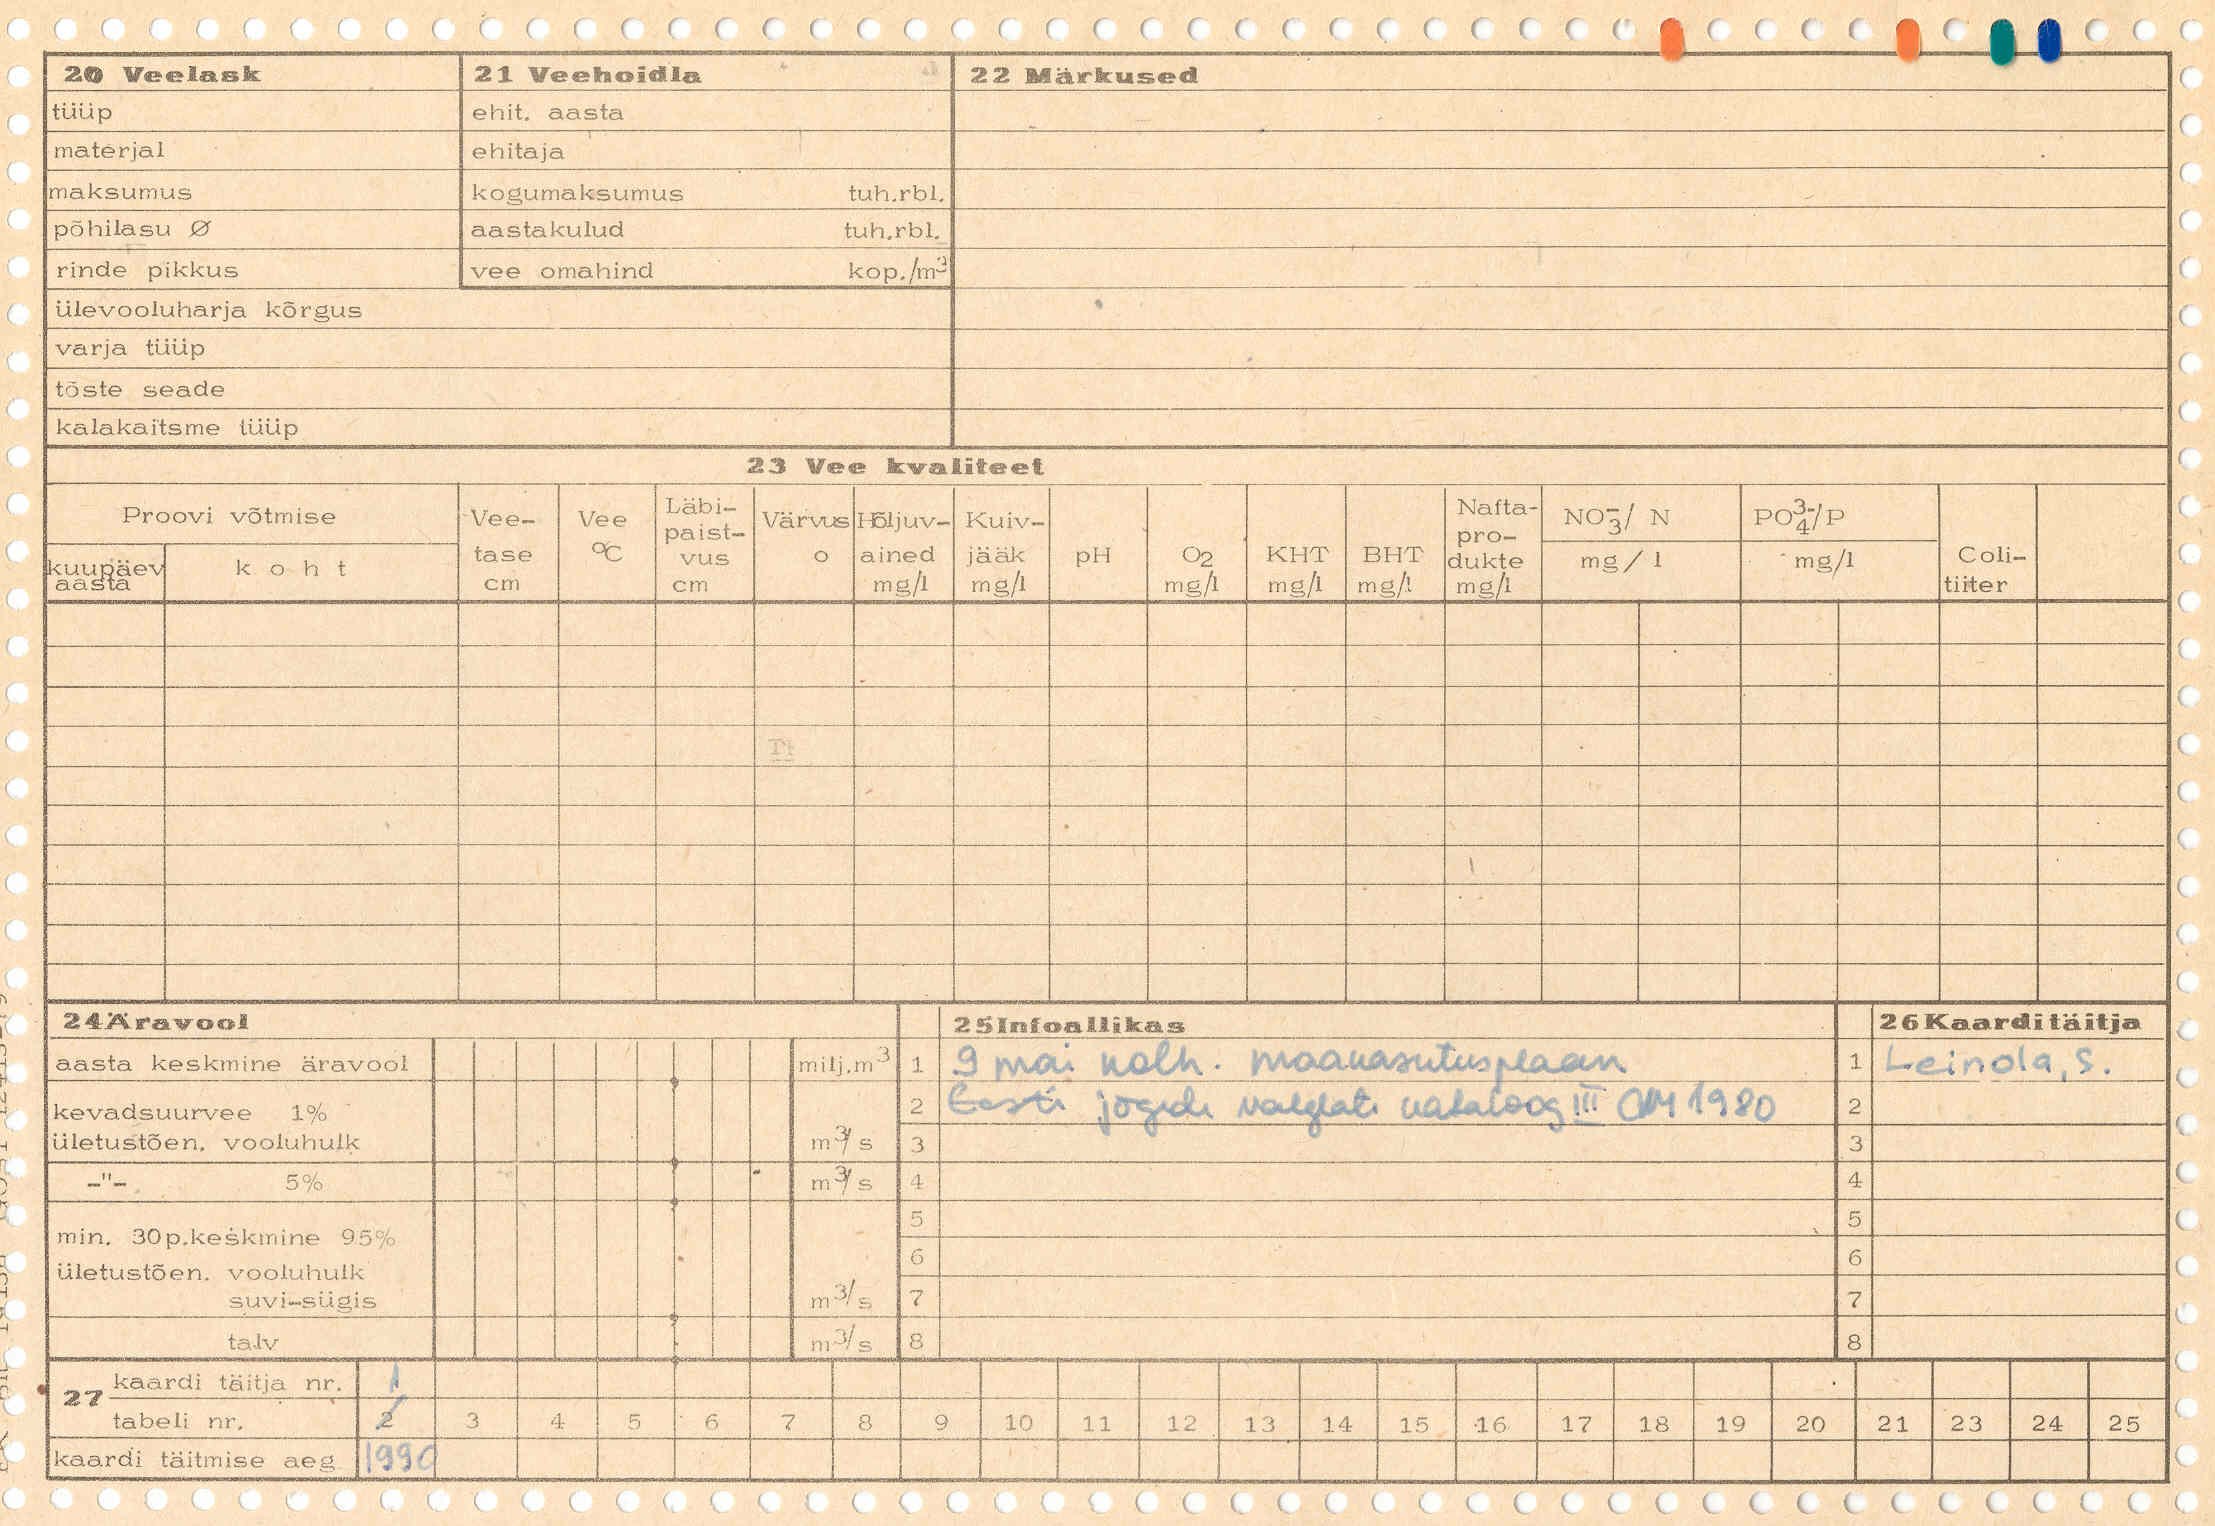 20 Veelask
tüüp
materjal
maksumus
põhilasu Ø
rinde pikkus
ülevooluharja kõrgus
varja tüüp
tõste seade
kalakaitsme tüüp
21 Veehoidla
ehit. aasta
ehitaja
kogumaksumus tuh.rbl.
aastakulud tuh.rbl.
vee omahind kop./m³
22 Märkused
23 Vee kvaliteet
Proovi võtmise
kuupäev
aasta
koht
Vee-
tase
cm
Vee
°C
Läbi-
paist-
vus
cm
Värvus
o
Hõljuv-
ained
mg/l
Kuiv-
jääk
mg/l
pH
O2
mg/l
KHT
mg/l
BHT
mg/l
Nafta-
pro-
dukte
mg/l
NO3-/ N
mg/l
PO4 3-/P
mg/l
Coli-
tiiter
24 Äravool
aasta keskmine äravool milj.m³
kevadsuurvee 1%
ületustõen. vooluhulk m³/s
-"- 5% m³/s
min. 30p.keskmine 95%
ületustõen. vooluhulk
suvi-sügis m³/s
talv m³/s
25 Infoallikas
1 9 mai kolh. maakasutusplaan
2 Eesti jõgede valglate kataloog III OM 1980
3
4
5
6
7
8
26 Kaardi täitja
1 Leinola, S.
2
3
4
5
6
7
8
27 kaardi täitja nr. 1
tabeli nr. 2 3 4 5 6 7 8 9 10 11 12 13 14 15 16 17 18 19 20 21 23 24 25
kaardi täitmise aeg 1990